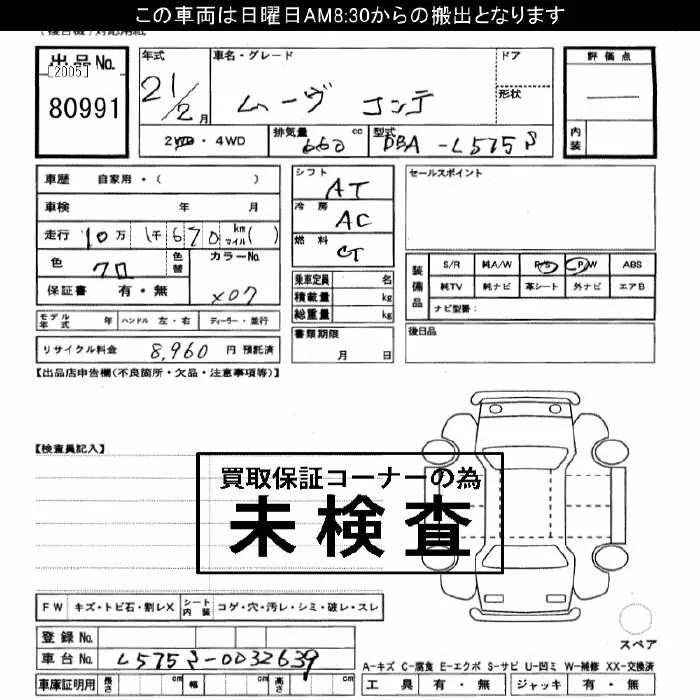 この車両は日曜日AM8:30からの搬出となります
出品No.
[2005]
80991
年式 車名・グレード ドア
21/2月 ムーヴ コンテ 形状
2WD・4WD 排気量 660 cc 型式 DBA-L575S
評価点
内装
車歴 自家用・( )
車検 年 月
走行 10万 1千670 km マイル( )
色 クロ 色替 カラーNo.
保証書 有・無 X07
モデル年式 年 ハンドル 左・右 ディーラー・並行
リサイクル料金 8,960 円 預託済
シフト AT
冷房 AC
燃料
乗車定員 名
積載量 kg
総重量 kg
書類期限
月 日
セールスポイント
装備品 S/R 純A/W P/S P/W ABS
純TV 純ナビ 革シート 外ナビ エアB
ナビ型番:
後日品
【出品店申告欄(不良箇所・欠品・注意事項等)】
【検査員記入】
買取保証コーナーの為
未検査
FW キズ・トビ石・割レX シート内装 コゲ・穴・汚レ・シミ・破レ・スレ
登録No.
車台No. L575S-0032639
車庫証明用 長さ cm 幅 cm 高さ cm
スペア
A-キズ C-腐食 E-エクボ S-サビ U-凹ミ W-補修 XX-交換済
工具 有・無 ジャッキ 有・無